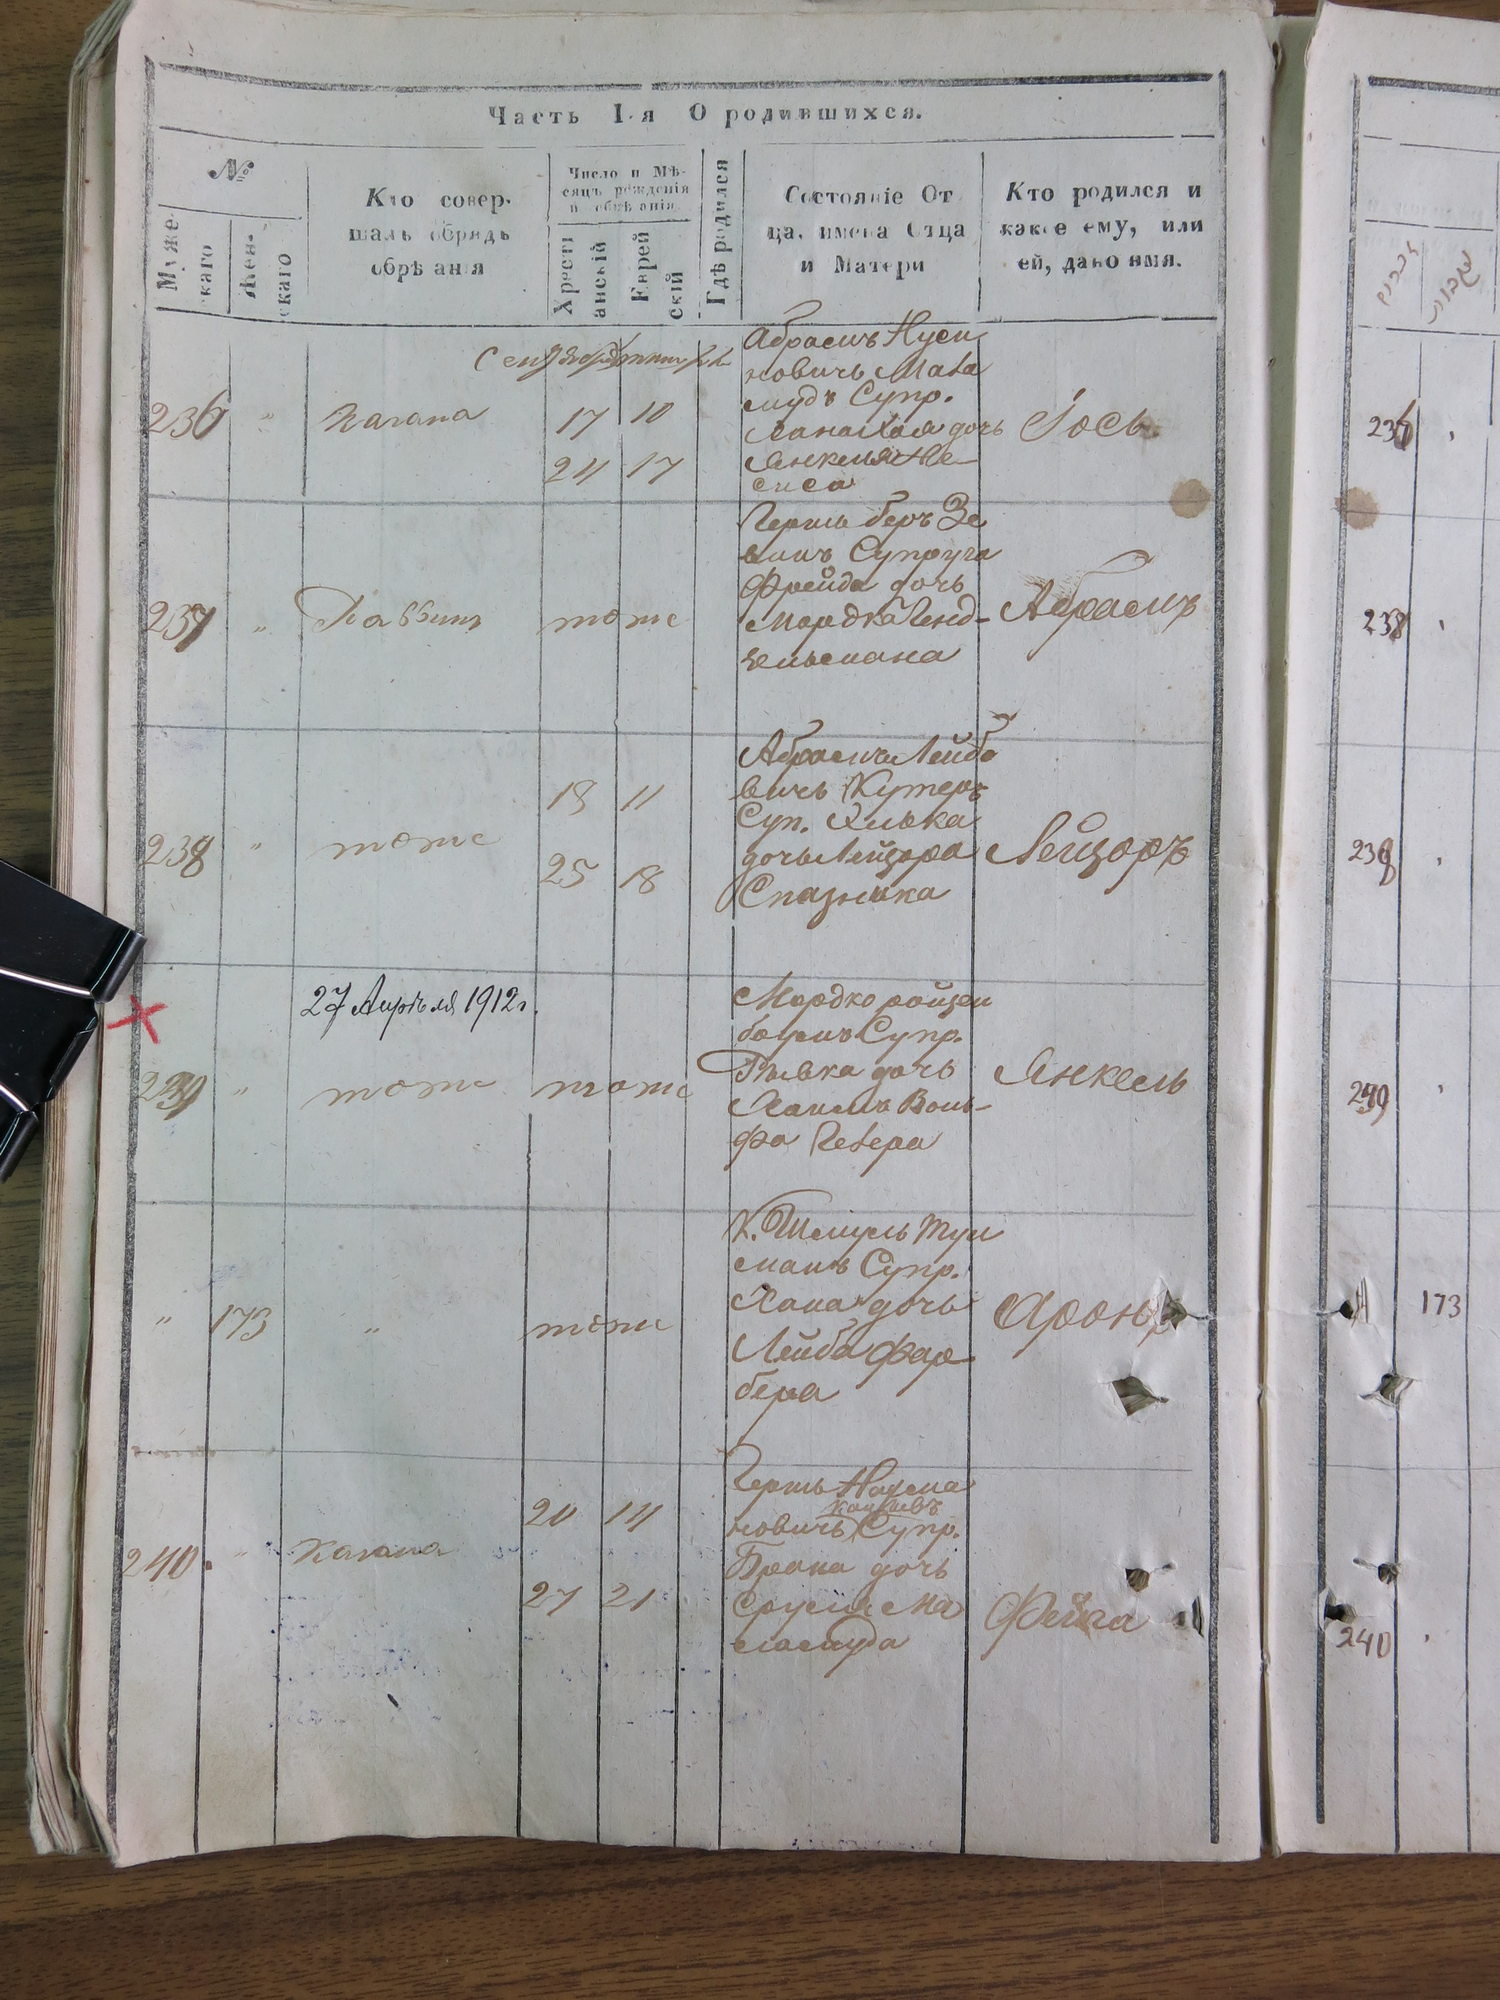 Часть I-я О родившихся.
№
Муже-
скаго
Жен-
скаго
Кто совер-
шалъ обрядъ
обрѣзанія
Число и Мѣ-
сяцъ рожденія
и обрѣзанія
Христі
анскій
Еврей
скій
Гдѣ родился
Состояніе От
ца, имена Отца
и Матери
Кто родился и
какое ему, или
ей, дано имя.
236 " Кагана 17 10
24 17
Абрамъ Нуси
новичъ
Супр.
дочь
Янкеля
Іось
237 " тоже
Гершъ Беръ Зе
Супруга
Фрейда дочь
Мордка Генд-
зельмана
Абрамъ
238 " тоже 18 11
25 18
Абрамъ Лейбо
вичъ Кутеръ
Суп. Хилька
дочь Лейзора
Спазника
Лейзоръ
27 Апрѣля 1912 г.
239 " тоже тоже
Мордко Ройзен
баумъ Супр.
Рывка дочь
Хаимъ Воль-
фа Гевера
Янкель
" 173 " тоже
К. Шмуль Туи
манъ Супр.
Хана дочь
Лейба Фар
бера
Аронъ
240 " Кагана 20 14
27 21
Гершъ Наума
новичъ Супр.
дочь
Сруля Ма
Фейга
236
238
239
173
240